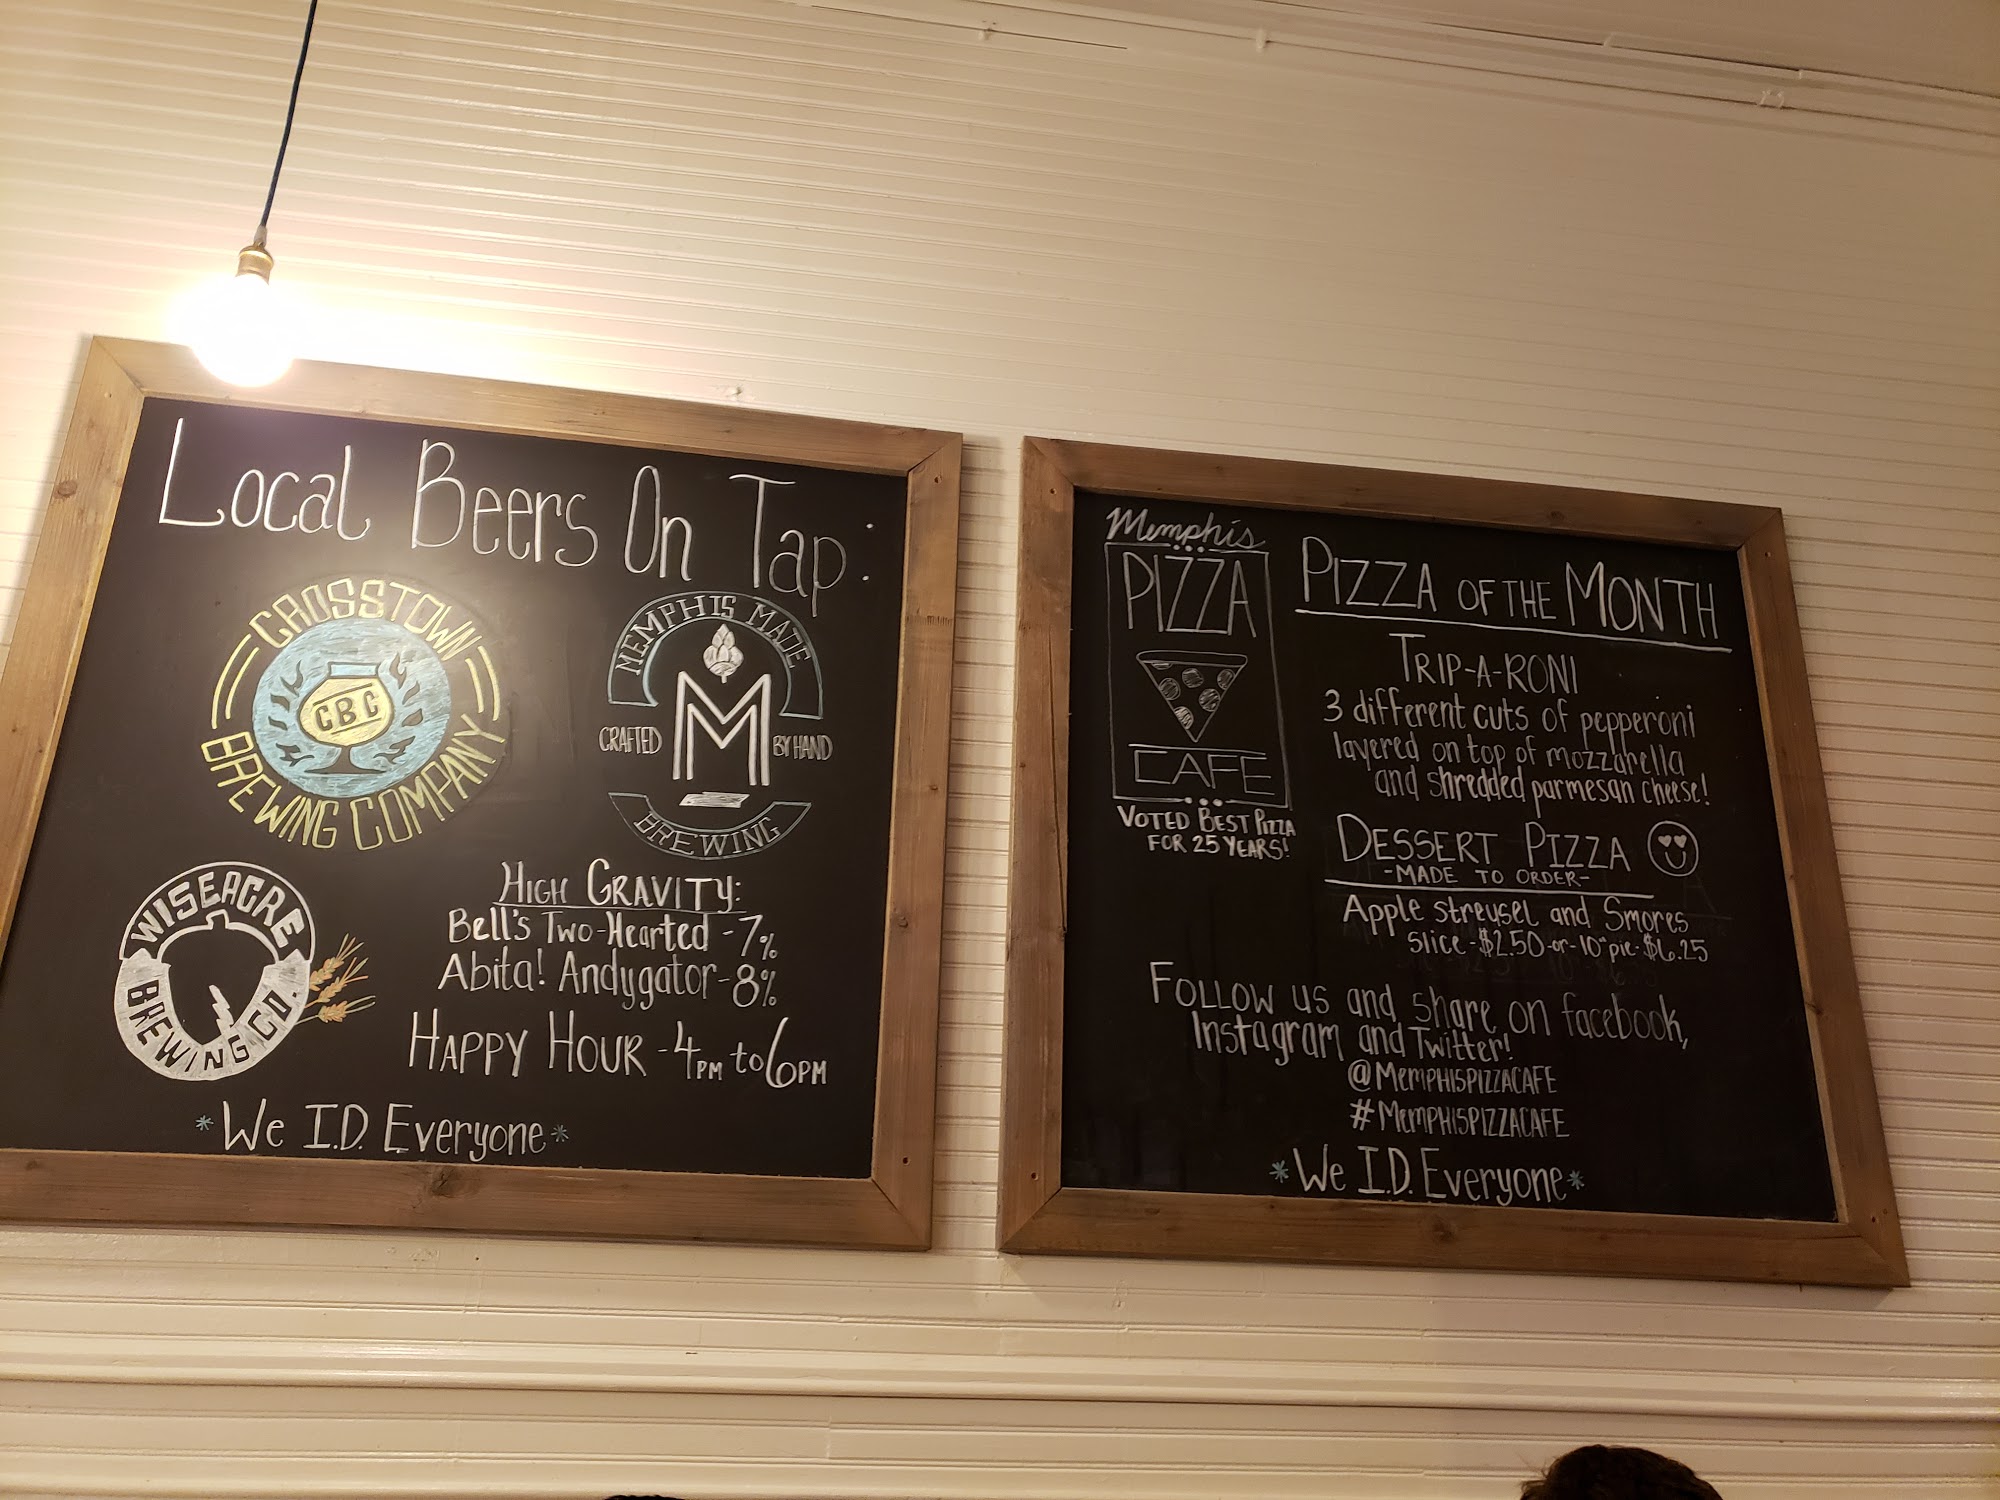 Local Beers On Tap:
CROSSTOWN
CBC
BREWING COMPANY
MEMPHIS MADE
CRAFTED M BY HAND
BREWING
WISEACRE
BREWING CO.
HIGH GRAVITY:
Bell's Two-Hearted - 7%
Abita! Andygator - 8%
HAPPY HOUR - 4PM to 6PM
*We I.D. Everyone*
Memphis
PIZZA
CAFE
VOTED BEST PIZZA
FOR 25 YEARS!
PIZZA OF THE MONTH
TRIP-A-RONI
3 different cuts of pepperoni
layered on top of mozzarella
and shredded parmesan cheese!
DESSERT PIZZA
-MADE TO ORDER-
Apple Streusel and Smores
Slice-$2.50-or-10"pie-$6.25
FOLLOW us and share on facebook,
Instagram and Twitter!
@MEMPHISPIZZACAFE
#MEMPHISPIZZACAFE
*We I.D. Everyone*